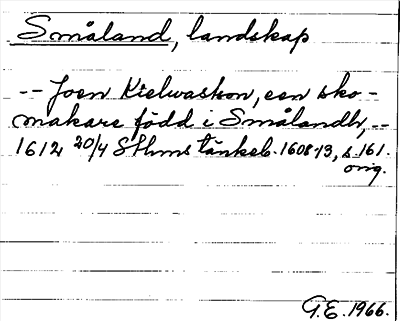 Småland, landskap
-- Joen Kielwasson, een sko-
makare född i Smålandh, --
1612 20/4 Sthms tänkeb. 1608-13, s. 161.
orig.
G.E. 1966.